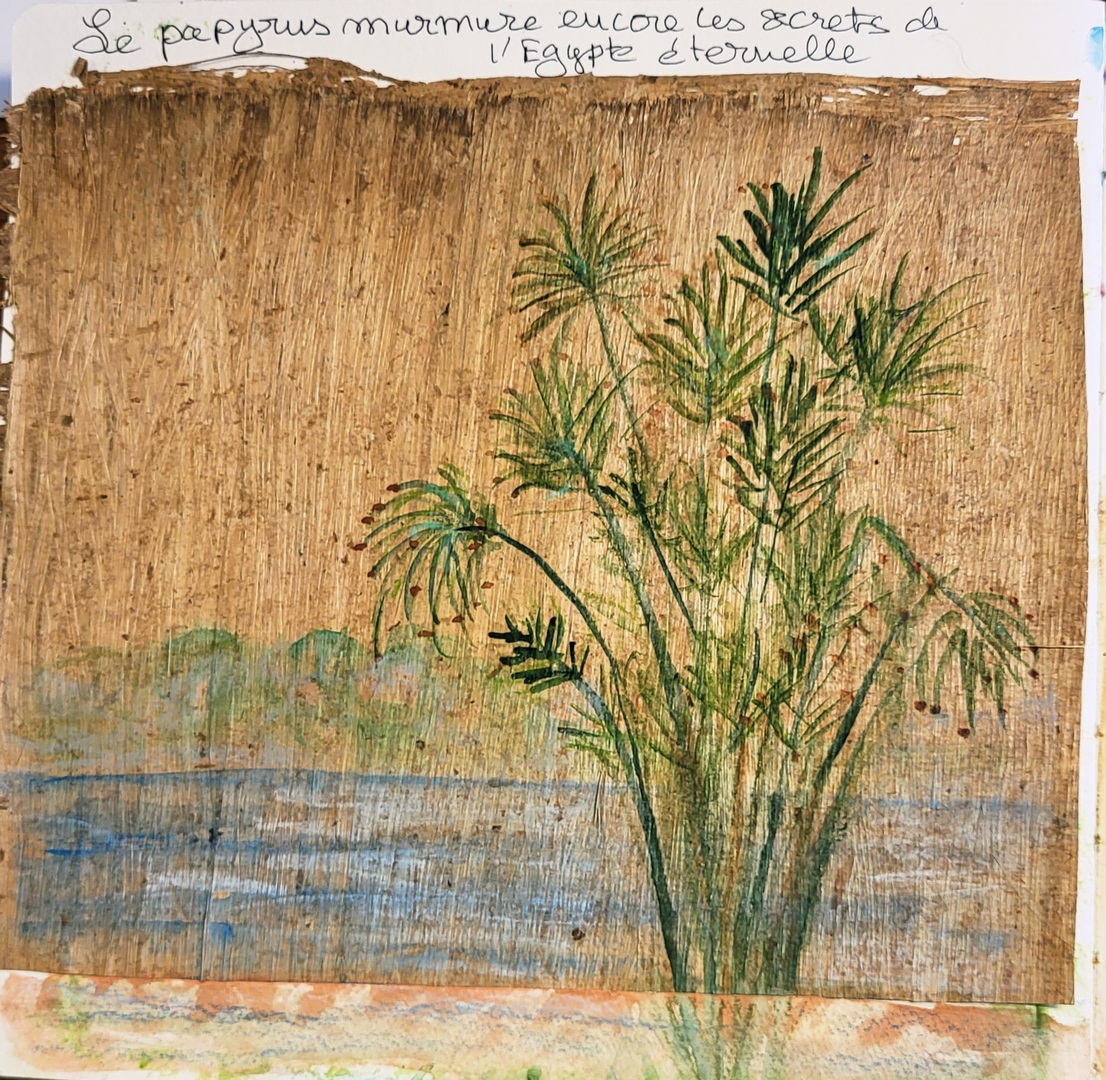 Le papyrus murmure encore les secrets de
l'Egypte éternelle